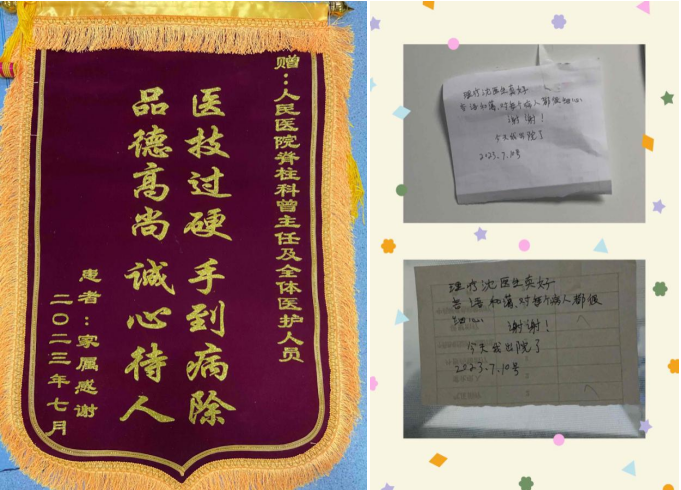 赠：人民医院脊柱科曾主任及全体医护人员
医技过硬 手到病除
品德高尚 诚心待人
患者：家属感谢
二〇二三年七月
理疗沈医生真好
言语和蔼,对每个病人都很细心
谢谢！
今天我出院了
2023.7.10号
理疗沈医生真好
言语和蔼,对每个病人都很
细心 谢谢！
今天我出院了
2023.7.10号